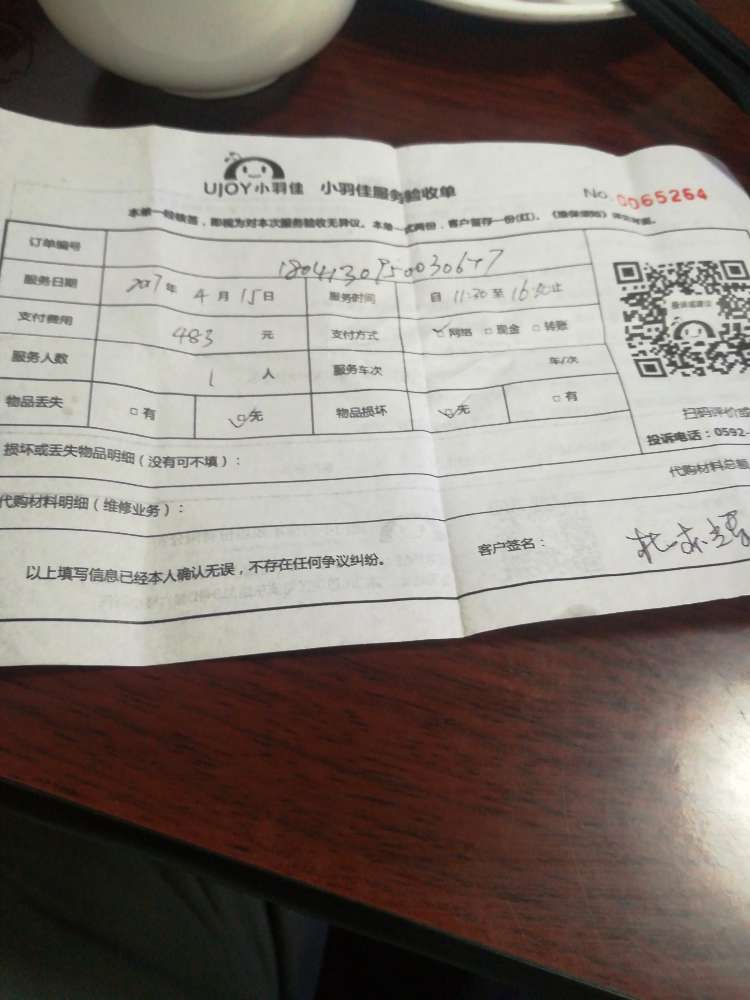 UJOY小羽佳 小羽佳服务验收单
No. 0065264
本单一经核签，即视为对本次服务验收无异议。本单一式两份，客户留存一份(红)。
订单编号 1804130950030647
服务日期 2017年 4月 15日 服务时间 自 11:20 至 16:20 止
支付费用 483 元 支付方式 网络 现金 转账
服务人数 1 人 服务车次 车/次
物品丢失 有 无 物品损坏 无 有
扫码评价或
投诉电话：0592-
损坏或丢失物品明细（没有可不填）：
代购材料总额
代购材料明细（维修业务）：
以上填写信息已经本人确认无误，不存在任何争议纠纷。
客户签名：